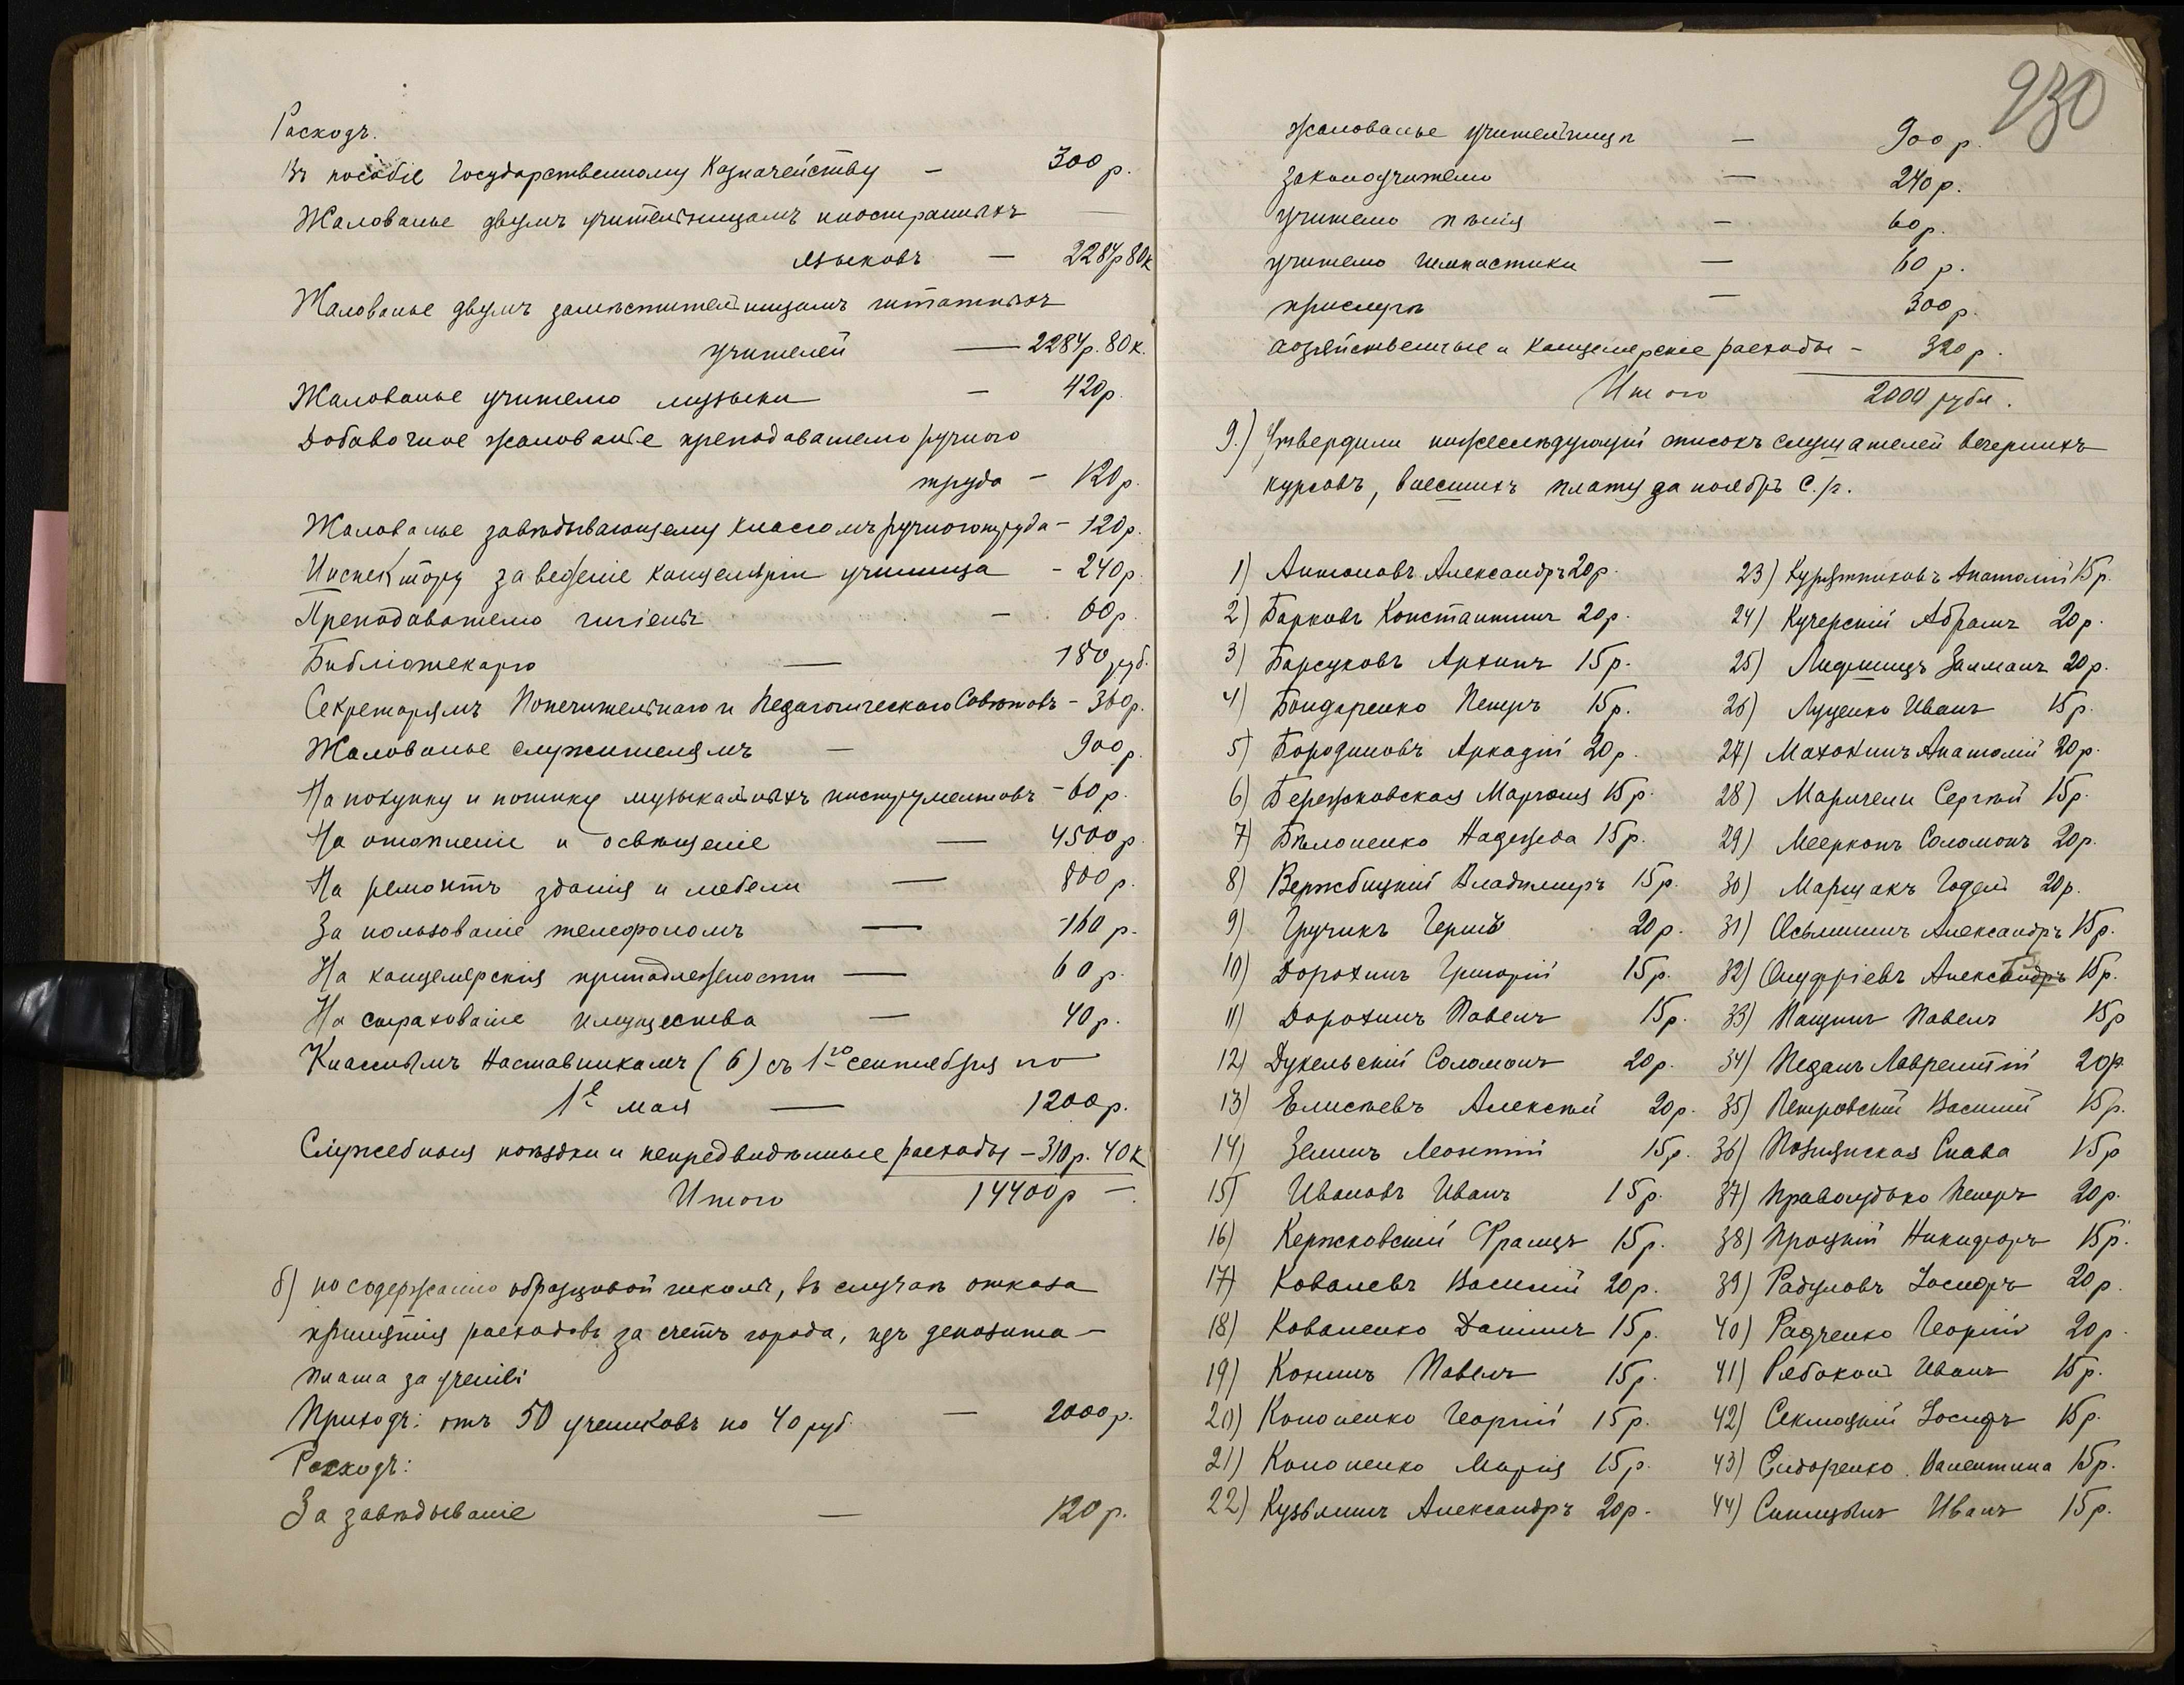 Расходъ.
Въ пособіе Государственному Казначейству — 300 р.
Жалованье двумъ учительницамъ иностранныхъ —
языковъ — 2284 р 80 к
Жалованье двумъ замѣстительницамъ штатныхъ
учителей — 2284 р. 80 к.
Жалованье учителю музыки — 420 р.
Добавочное жалованье преподавателю ручного
труда — 120 р.
Жалованье завѣдывающему классомъ ручного труда — 120 р.
Инспектору за веденіе канцеляріи училища — 240 р.
Преподавателю гигіены — 60 р.
Библіотекарю — 180 руб.
Секретарямъ Попечительнаго и Педагогическаго Совѣтовъ — 360 р.
Жалованье служителямъ — 900 р.
На покупку и починку музыкальныхъ инструментовъ — 60 р.
На отопленіе и освѣщеніе — 4500 р.
На ремонтъ зданія и мебели — 800 р.
За пользованіе телефономъ — 160 р.
На канцелярскія принадлежности — 60 р.
На страхованіе имущества — 40 р.
Класснымъ Наставникамъ (6) съ 1го сентября по
1е мая — 1200 р.
Служебныя поѣздки и непредвидѣнные расходы — 310 р. 40 к
Итого 14400 р —.
б) по содержанію образцовой школы, въ случаѣ отказа
принятія расходовъ за счетъ города, изъ депозита —
плата за ученіе:
Приходъ: отъ 50 учениковъ по 40 руб. — 2000 р.
Расходъ:
За завѣдываніе — 120 р.
930
Жалованье учительницѣ — 900 р.
законоучителю — 240 р.
учителю пѣнія — 60 р.
учителю гимнастики — 60 р.
прислугѣ — 300 р.
хозяйственные и канцелярскіе расходы — 320 р.
Итого 2000 рубл.
9.) Утвердили нижеслѣдующій списокъ слушателей вечернихъ
курсовъ, внесшихъ плату за ноябрь с./г.
1) Антоновъ Александръ 20 р.
2) Барковъ Константинъ 20 р.
3) Барсуковъ Архипъ 15 р.
4) Бондаренко Петръ 15 р.
5) Бородиновъ Аркадій 20 р.
6) Бережковская Марѳа 15 р.
7) Бѣлоненко Надежда 15 р.
8) Вержбицкій Владимиръ 15 р.
9) Гручикъ Гершъ 20 р.
10) Дорохинъ Григорій 15 р.
11) Дорохинъ Павелъ 15 р.
12) Дукельскій Соломонъ 20 р.
13) Елисѣевъ Алексѣй 20 р.
14) Земинъ Леонтій 15 р.
15) Ивановъ Иванъ 15 р.
16) Кержковскій Францъ 15 р.
17) Ковалевъ Василій 20 р.
18) Коваленко Даніилъ 15 р.
19) Конинъ Павелъ 15 р.
20) Кононенко Георгій 15 р.
21) Кононенко Марія 15 р.
22) Кузьминъ Александръ 20 р.
23) Курятниковъ Анатолій 15 р.
24) Кучерскій Абрамъ 20 р.
25) Лифшицъ Залманъ 20 р.
26) Луценко Иванъ 15 р.
27) Махохинъ Анатолій 20 р.
28) Маричели Сергѣй 15 р.
29) Мееркопъ Соломонъ 20 р.
30) Маршакъ Годель 20 р.
31) Осьмининъ Александръ 15 р.
32) Онуфріевъ Александръ 15 р.
33) Пащинъ Павелъ 15 р
34) Педанъ Лаврентій 20 р
35) Петровскій Василій 15 р.
36) Познянская Слава 15 р
37) Правосудько Петръ 20 р.
38) Процкій Никифоръ 15 р.
39) Радуловъ Іосифъ 20 р.
40) Радченко Георгій 20 р.
41) Рябоконь Иванъ 15 р.
42) Секлюцкій Іосифъ 15 р.
43) Сидоренко Валентина 15 р.
44) Синицынъ Иванъ 15 р.